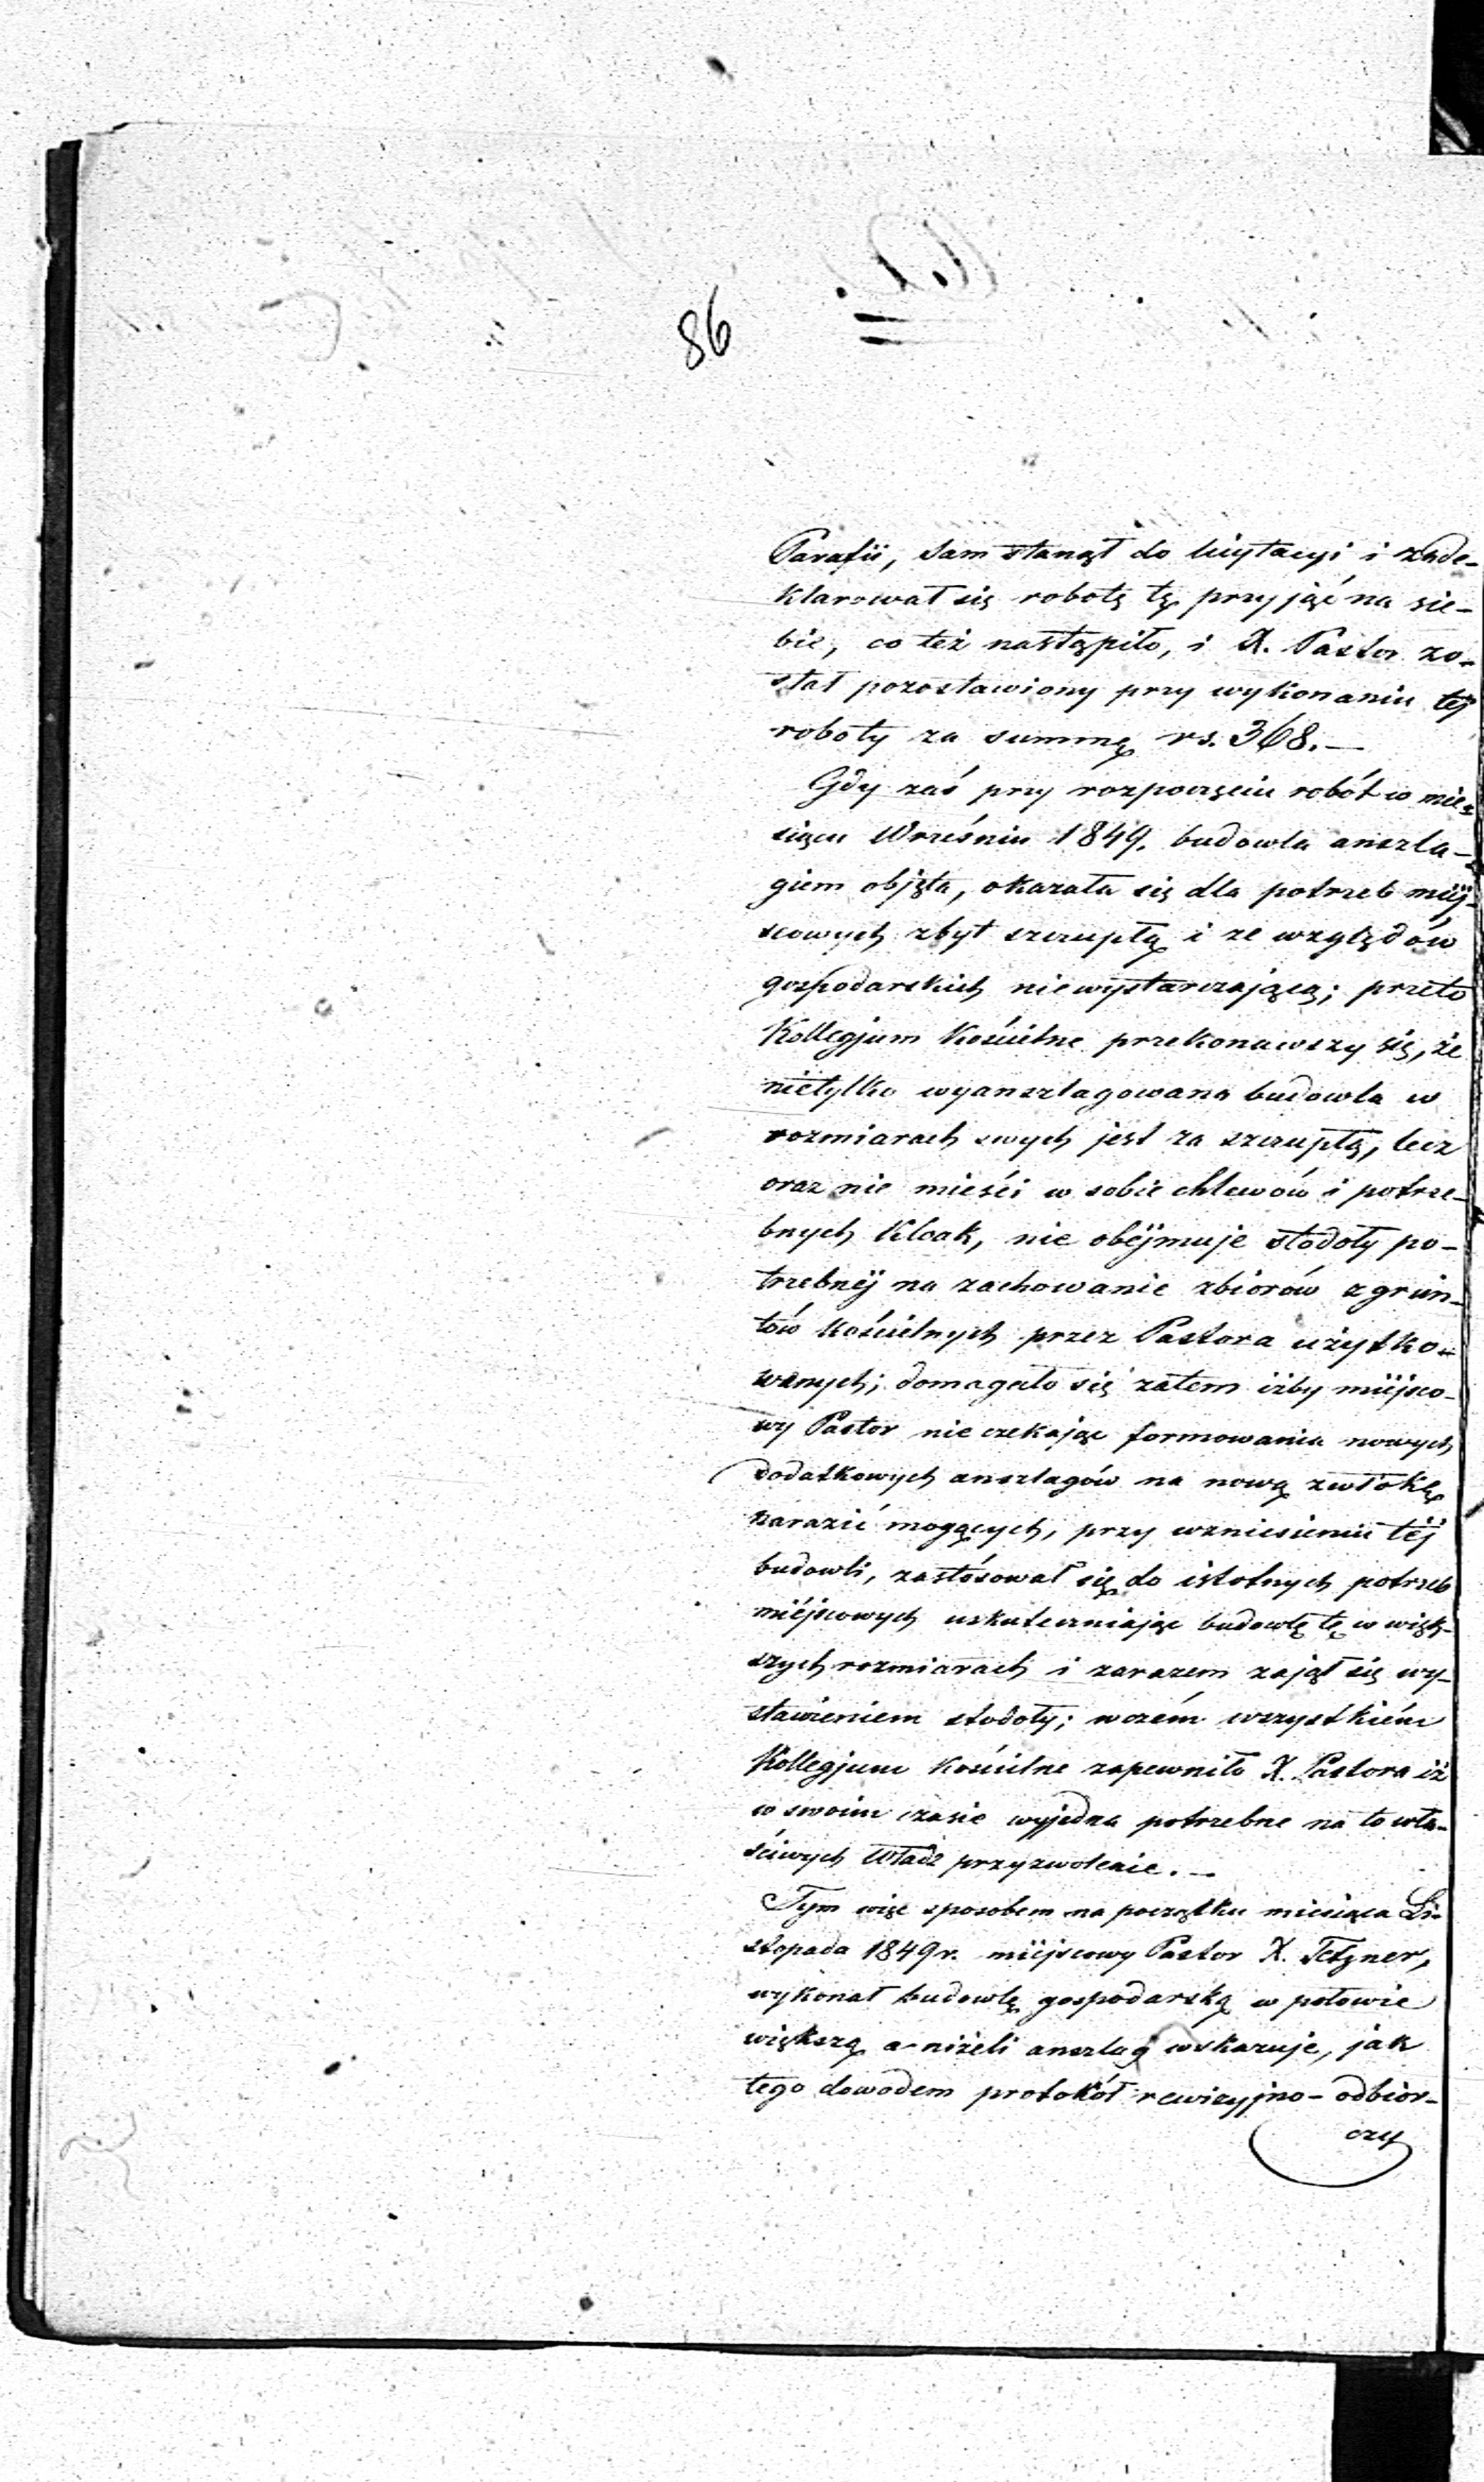 86
Parafii, sam stanął do licytacyi i zade-
klarował się robotę tę przyjąć na sie-
bie, co też nastąpiło, i X. Pastor zo-
stał pozostawiony przy wykonaniu téj
roboty za summę rs. 368.—
Gdy zaś przy rozpoczęciu robót w mie-
siącu Wrześniu 1849. budowla anszla-
giem objęta, okazała się dla potrzeb miéj-
scowych zbyt szczupłą i ze względów
gospodarskich niewystarczającą; przeto
Kollegjum Kościelne przekonawszy się, że
nietylko wyanszlagowana budowla w
rozmiarach swych jest za szczupłą, lecz
oraz nie mieści w sobie chlewów i potrze-
bnych kloak, nie obéjmuje stodoły po-
trzebnéj na zachowanie zbiorów z grun-
tów kościelnych przez Pastora użytko-
wanych; domagało się zatem iżby miéjsco-
wy Pastor nie czekając formowania nowych
dodatkowych anszlagów na nową zwłokę
narazić mogących, przy wzniesieniu téj
budowli, zastósował się do istotnych potrzeb
miéjscowych uskuteczniając budowlę tę w więk-
szych rozmiarach i zarazem zajął się wy-
stawieniem stodoły; w czém wszystkiém
Kollegjum Kościelne zapewniło X. Pastora iż
w swoim czasie wyjedna potrzebne na to wła-
ściwych Władz przyzwolenie.—
Tym więc sposobem na początku miesiąca Li-
stopada 1849 r. miéjscowy Pastor X. Tetzner,
wykonał budowlę gospodarską w połowie
większą a-niżeli anszlag wskazuje, jak
tego dowodem protokół rewizyjno-odbior-
czy